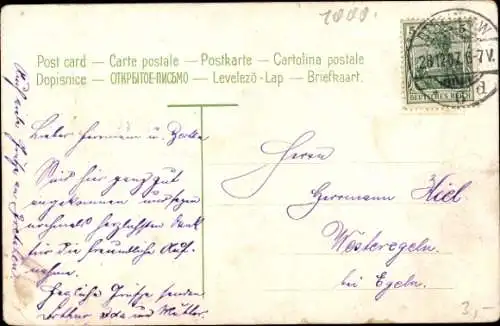 1000.
Post card – Carte postale – Postkarte – Cartolina postale
Dopisnice – ОТКРЫТОЕ-ПИСЬМО – Levelező-Lap – Briefkaart.
28.12.07. 6-7V.
DEUTSCHES REICH
Lieber Herrmann u.
Sind hier ganz gut
angekommen und sagen
nochmals herzlichsten Dank
für die freundliche Auf-
nahme.
Herzliche Grüße senden
Lothar Ida und Mutter.
Herrn
Herrmann Kiel
Westeregeln.
bei Egeln.
3,-